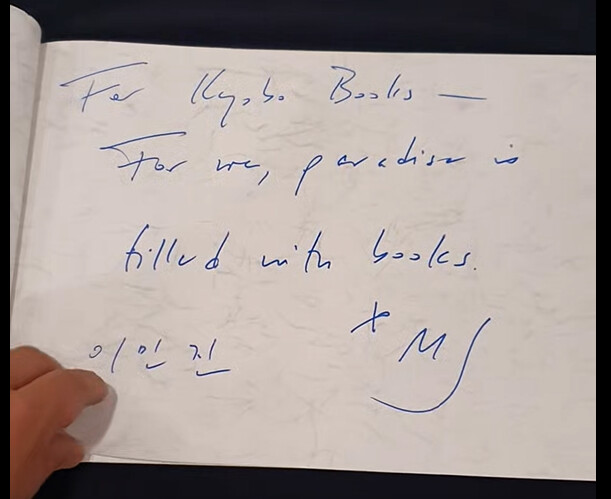 For Kyobo Books —
For me, paradise is
filled with books.
이민진
x MJ